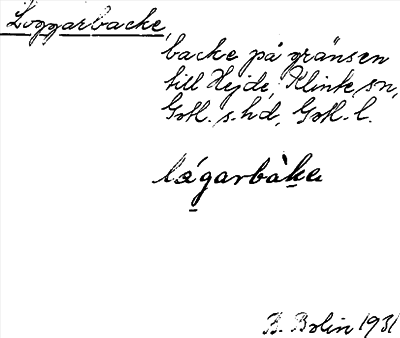 Loggarbacke,
backe på gränsen
till Hejde, Klinte sn,
Gotl. s. hd, Gotl. l.
lågarbàka
B. Bolin 1931